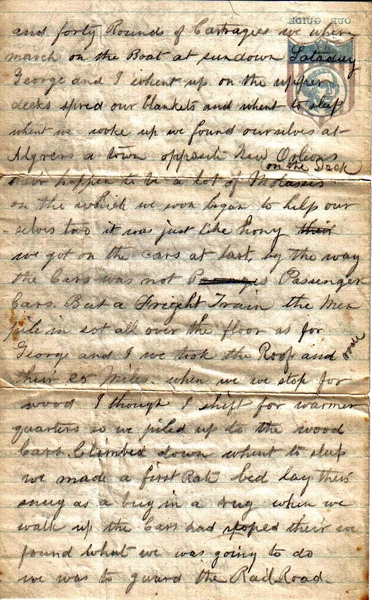 OUR GUIDE
and forty Rounds of Cartrages we where
march on the Boat at sundown Sataday
George and I whent up on the upper
decks spred our blankets and whent to sleep
when we woke up we found ourselves at
Algeres a town opposite New Orleans
on the Deck
their happen to be a lot of Molasses
on the which we soon began to help our
selves too it was just like hony their
we got on the cars at last, by the way
the Cars was not Passenger
Cars. But a Freight Train the Men
pile in sot all over the floor as for
George and I we took the Roof and rode
their 25 Miles. when we we stop for
wood I though I shift for warmer
quarters so we piled up to the wood
Cars. Climbed down whent to sleep
we made a first Rate bed lay their
snug as a bug in a rug when we
walk up the Cars had stoped their we
found what we was going to do
we was to guard the Rail Road.